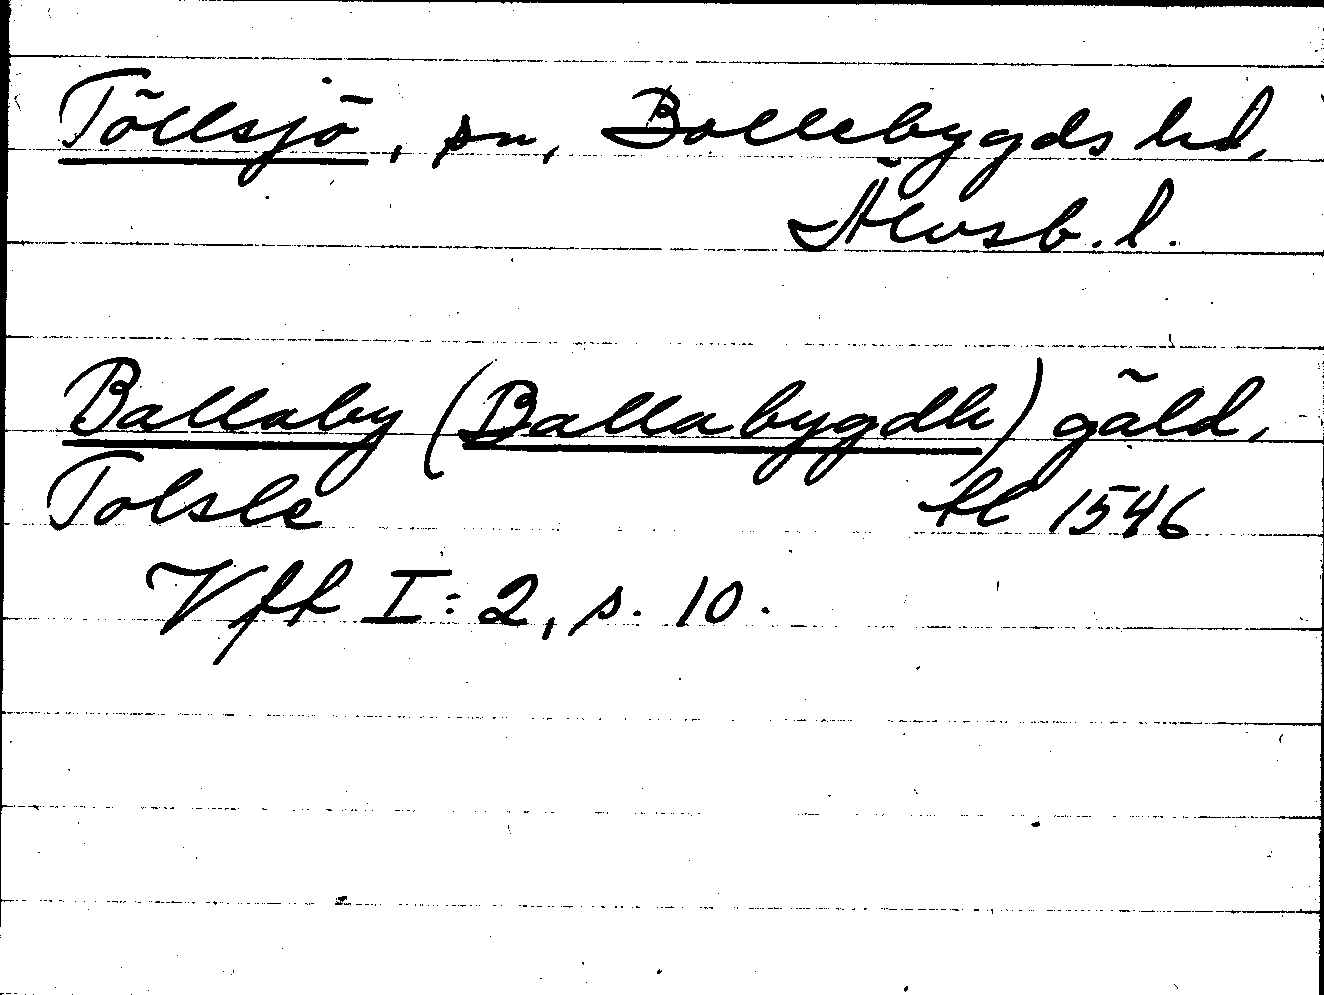 Töllsjö, sn, Bollebygds hd,
Älvsb. l.
Ballaby (Ballabygdh) gäld,
Tolsle tl 1546
Vft I:2, s. 10.